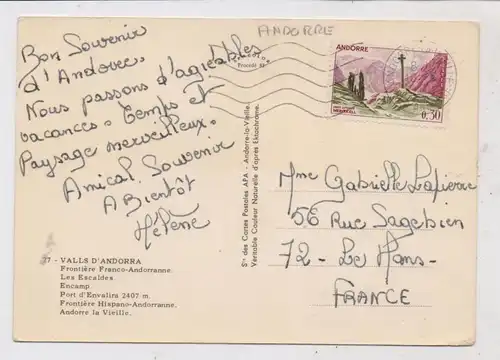 ANDORRE
Bon Souvenir
d'Andorre.
Nous passons d'agréables
vacances. Temps et
Paysage merveilleux.
Amical Souvenir
A Bientôt
Hélène
27 - VALLS D'ANDORRA
Frontière Franco-Andorranne.
Les Escaldes
Encamp
Port d'Envalira 2407 m.
Frontière Hispano-Andorranne.
Andorre la Vieille.
Procédé
Sté des Cartes Postales APA - Andorre-la-Vieille.
Véritable Couleur Naturelle d'après Ektachrome.
ANDORRE
0,30
Mme Gabrielle Lapierre
56 Rue Sagebien
72 - Le Mans -
FRANCE